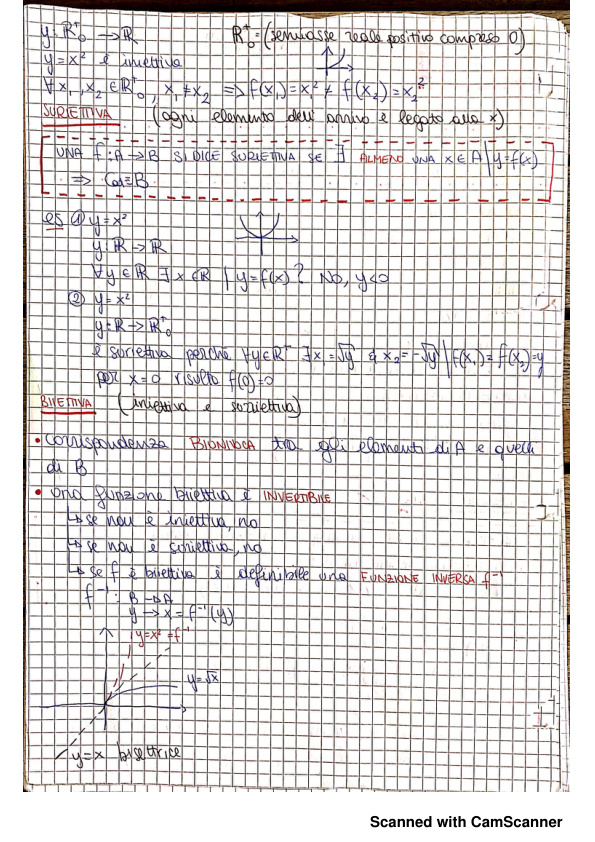 y: ℝ₀⁺ → ℝ ℝ₀⁺ = (semiasse reale positivo compreso 0)
y = x² è iniettiva
∀ x₁, x₂ ∈ ℝ₀⁺, x₁ ≠ x₂ => f(x₁) = x₁² ≠ f(x₂) = x₂²
SURIETTIVA (ogni elemento dell' arrivo è legato alla x)
UNA f: A → B SI DICE SURIETTIVA SE ∃ ALMENO UNA x ∈ A | y = f(x)
=> Cod = B
es ① y = x²
y: ℝ → ℝ
∀ y ∈ ℝ ∃ x ∈ ℝ | y = f(x)? No, y<0
② y = x²
y: ℝ → ℝ₀⁺
è suriettiva perché ∀ y ∈ ℝ⁺ ∃ x₁ = √y & x₂ = -√y | f(x₁) = f(x₂) = y
per x=0 risulta f(0)=0
BIIETTIVA (iniettiva e suriettiva)
• corrispondenza BIUNIVOCA tra gli elementi di A e quelli
di B
• una funzione biiettiva è INVERTIBILE
↳ se non è iniettiva, no
↳ se non è suriettiva, no
↳ se f è biiettiva è definibile una FUNZIONE INVERSA f⁻¹
f⁻¹: B → A
y → x = f⁻¹(y)
y = x² = f⁻¹
y = √x
y = x bisettrice
Scanned with CamScanner